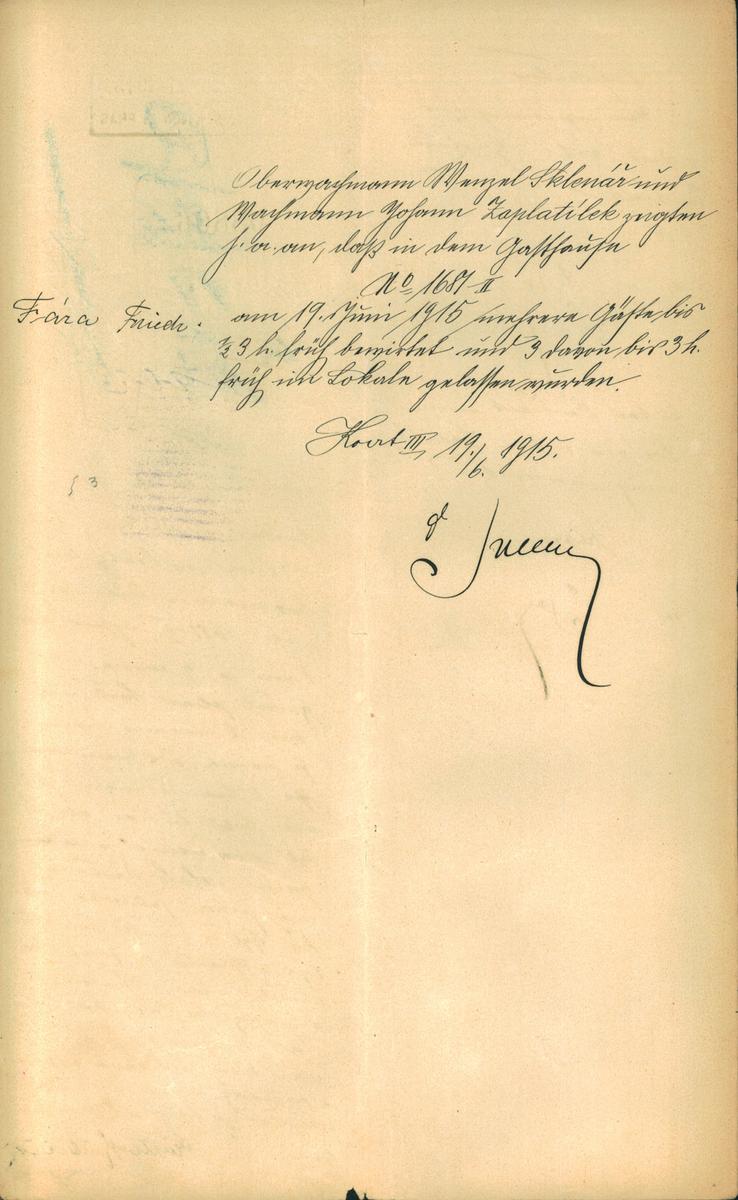 Oberwachmann Wenzel Sklenář und
Wachmann Johann Zaplatílek zeigten
h. a. an, daß in dem Gasthause
No 1681-II
Fára Friedr. am 19. Juni 1915 mehrere Gäste bis
½ 3 h. früh bewirtet und 3 davon bis 3 h.
früh im Lokale gelassen wurden.
III 19./6. 1915.
§ 3